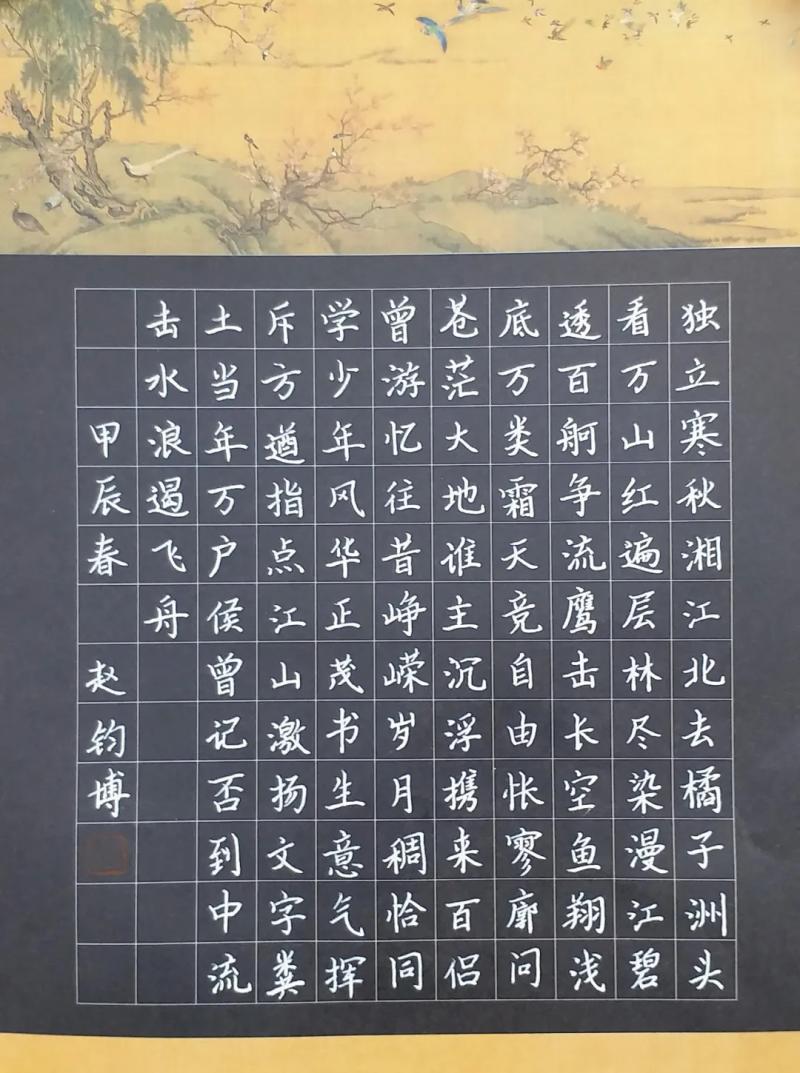 独立寒秋湘江北去橘子洲头
看万山红遍层林尽染漫江碧
透百舸争流鹰击长空鱼翔浅
底万类霜天竞自由怅寥廓问
苍茫大地谁主沉浮携来百侣
曾游忆往昔峥嵘岁月稠恰同
学少年风华正茂书生意气挥
斥方遒指点江山激扬文字粪
土当年万户侯曾记否到中流
击水浪遏飞舟
甲辰春 赵钧博